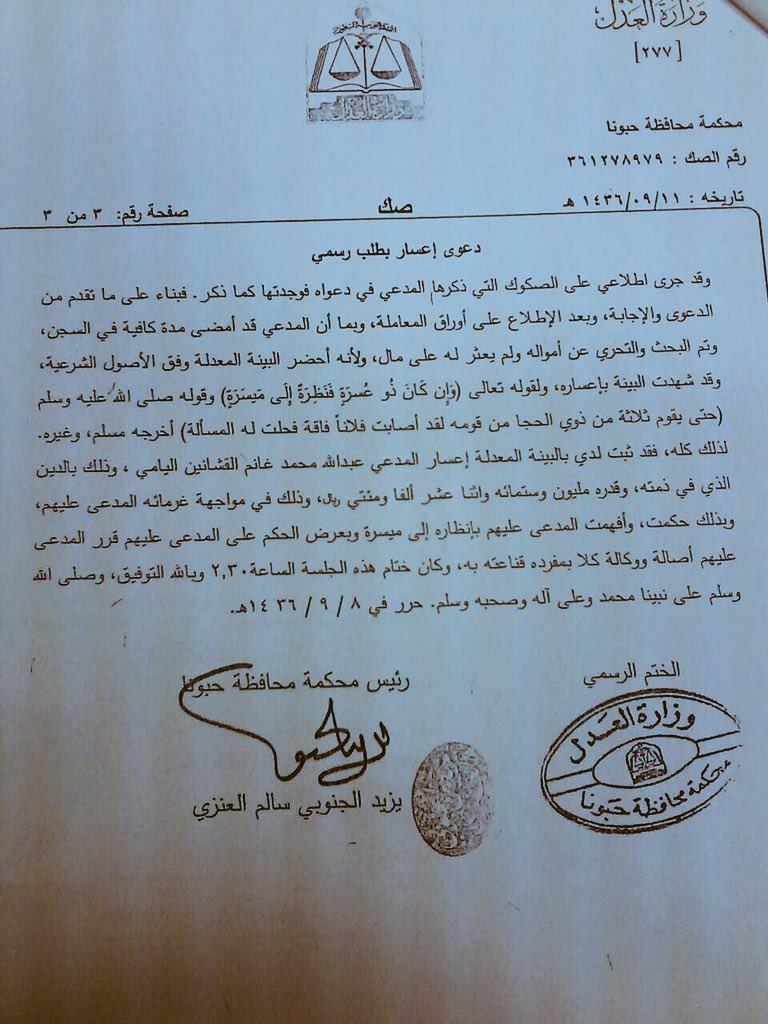 وزارة العدل
[٢٧٧]
محكمة محافظة حبونا
رقم الصك : ٣٦١٢٧٨٩٧٩
تاريخه : ١٤٣٦/٠٩/١١ هـ
صك
صفحة رقم: ٣ من ٣
دعوى إعسار بطلب رسمي
وقد جرى اطلاعي على الصكوك التي ذكرها المدعي في دعواه فوجدتها كما ذكر. فبناء على ما تقدم من
الدعوى والإجابة، وبعد الإطلاع على أوراق المعاملة، وبما أن المدعي قد أمضى مدة كافية في السجن،
وتم البحث والتحري عن أمواله ولم يعثر له على مال، ولأنه أحضر البينة المعدلة وفق الأصول الشرعية،
وقد شهدت البينة بإعساره، ولقوله تعالى (وَإِن كَانَ ذُو عُسرَةٍ فَنَظِرَةٌ إِلَى مَيسَرَةٍ) وقوله صلى الله عليه وسلم
(حتى يقوم ثلاثة من ذوي الحجا من قومه لقد أصابت فلاناً فاقة فحلت له المسألة) أخرجه مسلم، وغيره.
لذلك كله، فقد ثبت لدي بالبينة المعدلة إعسار المدعي عبدالله محمد غانم القشانين اليامي ، وذلك بالدين
الذي في ذمته، وقدره مليون وستمائه واثنا عشر ألفا ومئتي ريال، وذلك في مواجهة غرمائه المدعى عليهم،
وبذلك حكمت، وأفهمت المدعى عليهم بإنظاره إلى ميسرة وبعرض الحكم على المدعى عليهم قرر المدعى
عليهم أصالة ووكالة كلا بمفرده قناعته به، وكان ختام هذه الجلسة الساعة٢,٣٠ وبالله التوفيق، وصلى الله
وسلم على نبينا محمد وعلى آله وصحبه وسلم. حرر في ٨ / ٩ / ١٤٣٦هـ.
الختم الرسمي
رئيس محكمة محافظة حبونا
وزارة العدل
محكمة محافظة حبونا
يزيد الجنوبي سالم العنزي